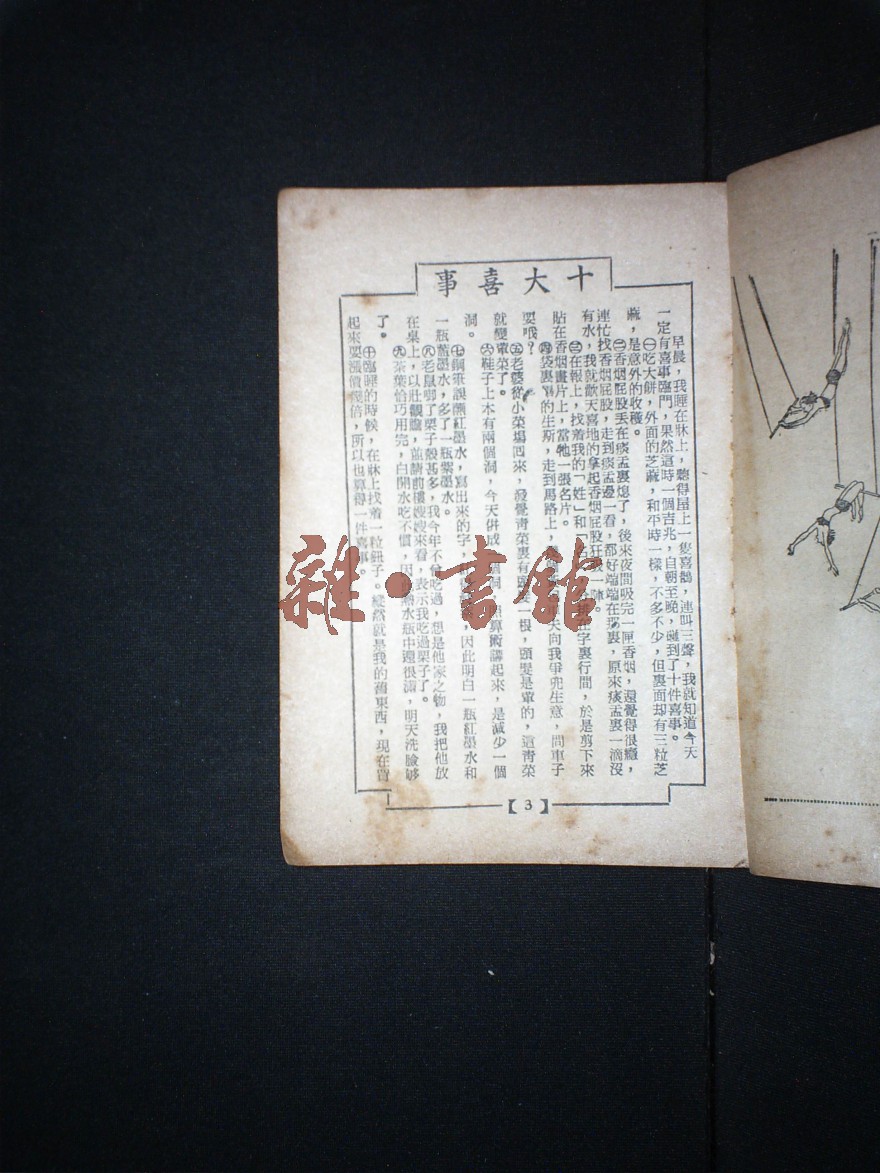 十大喜事
早晨，我睡在牀上，聽得屋上一隻喜鵲，連叫三聲，我就知道今天
一定有喜事臨門，果然這時一個吉兆，自朝至晚，碰到了十件喜事。
㊀吃大餅，外面的芝蔴，和平時一樣，不多不少，但裏面却有三粒芝
蔴，是意外的收穫。
㊁香烟屁股丢在痰盂裏熄了，後來夜間吸完一匣香烟，還覺得很癮，
連忙找香烟屁股，走到痰盂邊一看，都好端端在那裏，原來痰盂裏一滴沒
有水，我就歡天喜地的拿起香烟屁股狂吸一陣。
㊂在報上，找着我的「姓」和「名」字裏行間，於是剪下來
貼在香烟畫片上，當牠一張名片。
㊃袋裏的生所，走到馬路上，夫向我爭兜生意，問車子
要哦？
㊄老婆從小菜場回來，發覺靑菜裏有一根，頭髮是葷的，這靑菜
就變葷菜了。
㊅鞋子上本有兩個洞，今天併成一個洞，照算術講起來，是減少一個
洞。
㊆鋼筆誤蘸紅墨水，寫出來的字，因此明白一瓶紅墨水和
一瓶藍墨水，多了一瓶紫墨水。
㊇老鼠啣了栗子殼甚多，我今年不曾吃過，想是他家之物，我把他放
在桌上，以壯觀瞻，並請前樓嫂嫂來看，表示我吃過栗子了。
㊈茶葉恰巧用完，白開水吃不慣，因熱水瓶中還很滿，明天洗臉够
了。
㊉臨睡的時候，在牀上找着一粒鈕子。縱然就是我的舊東西，現在買
起來要漲價幾倍，所以也算得一件喜事。
【3】
雜·書舘